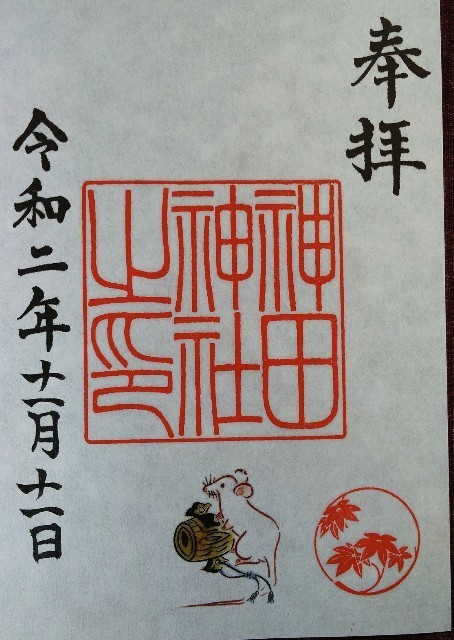 奉拝
神田
神社
之印
令和二年十一月十一日